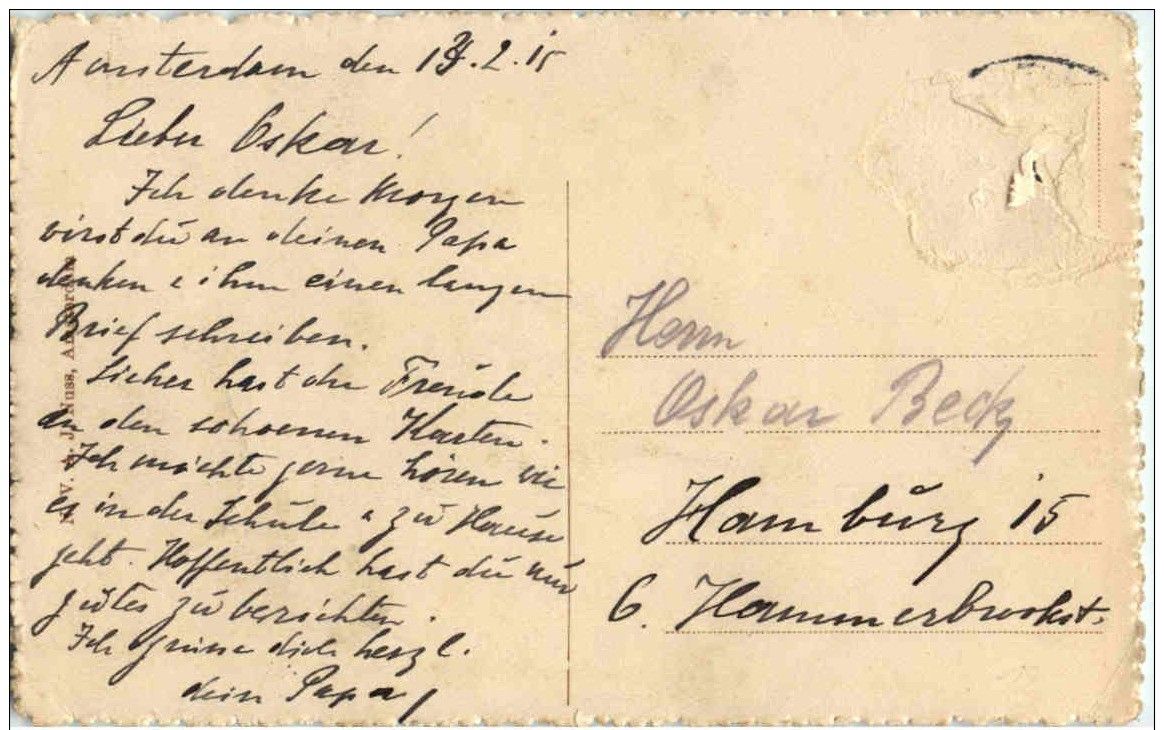 Amsterdam den 2.15
Lieber Oskar!
Ich denke Morgen
wirst du an deinen Papa
denken & ihm einen langen
Brief schreiben.
Sicher hast du Freude
an den schoenen Karten.
Ich möchte gerne hören wie
es in der Schule & zu Hause
geht. Hoffentlich hast du nur
gutes zu berichten.
Ich grüsse dich herzl.
dein Papa
Herrn
Oskar Beck
Hamburg 15
6. Hammerbrookst.
J. Nuss,